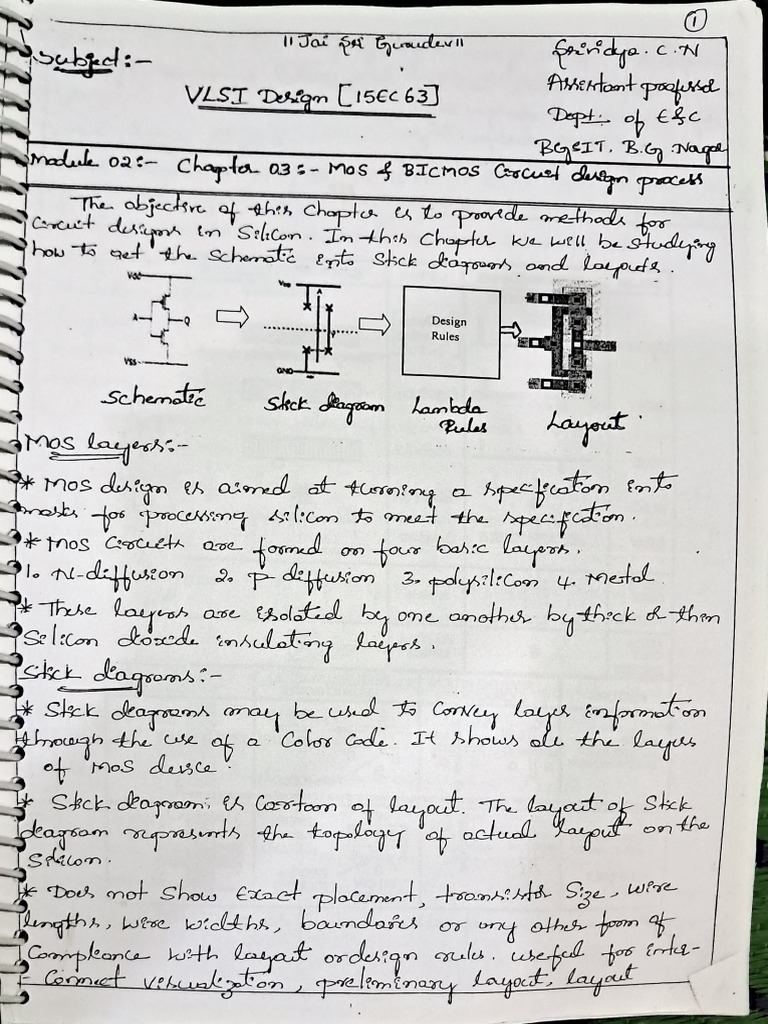 1
|| Jai Sri Gurudev ||
Subject:-
Srividya. C. N
Assistant professor
VLSI Design [15EC63]
Dept. of E&C
BGSIT. B.G. Nagar
Module 02:- Chapter 03:- MOS & BICMOS Circuit design process
The objective of this Chapter is to provide methods for
Circuit designs in Silicon. In this Chapter we will be studying
how to get the schematic into Stick diagrams and layouts.
VDD
A
Q
VSS
VDD
A
GND
Design
Rules
Schematic
Stick diagram
Lambda
Rules
Layout
MOS layers:-
* MOS design is aimed at turning a specification into
masks for processing silicon to meet the specification.
* MOS Circuits are formed on four basic layers.
1. N-diffusion 2. p-diffusion 3. polysilicon 4. Metal
* These layers are isolated by one another by thick or thin
Silicon dioxide insulating layers.
Stick diagrams:-
* Stick diagrams may be used to Convey layer information
through the use of a Color Code. It shows all the layers
of MOS device.
* Stick diagram is Cartoon of layout. The layout of Stick
diagram represents the topology of actual layout on the
Silicon.
* Does not Show Exact placement, transistor Size, wire
lengths, wire widths, boundaries or any other form of
Compliance with layout or design rules. useful for inter-
- Connect visualization, preliminary layout, layout